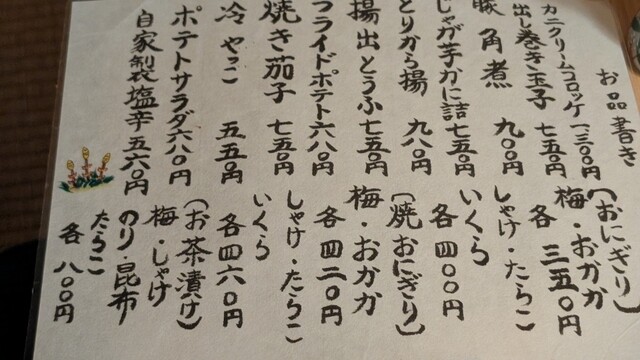 お品書き
カニクリームコロッケ 一三〇〇円
出し巻き玉子 七五〇円
豚角煮 九〇〇円
じゃが芋かに詰 七五〇円
とりから揚 九八〇円
揚出とうふ 七五〇円
フライドポテト 六八〇円
焼き茄子 七五〇円
冷やっこ 五五〇円
ポテトサラダ 六八〇円
自家製塩辛 五六〇円
(おにぎり)
梅・おかか
各 三五〇円
しゃけ・たらこ
いくら
各 四〇〇円
(焼おにぎり)
梅・おかか
各 四二〇円
しゃけ・たらこ
いくら
各 四六〇円
(お茶漬け)
梅・しゃけ
のり・昆布
たらこ
各 八〇〇円